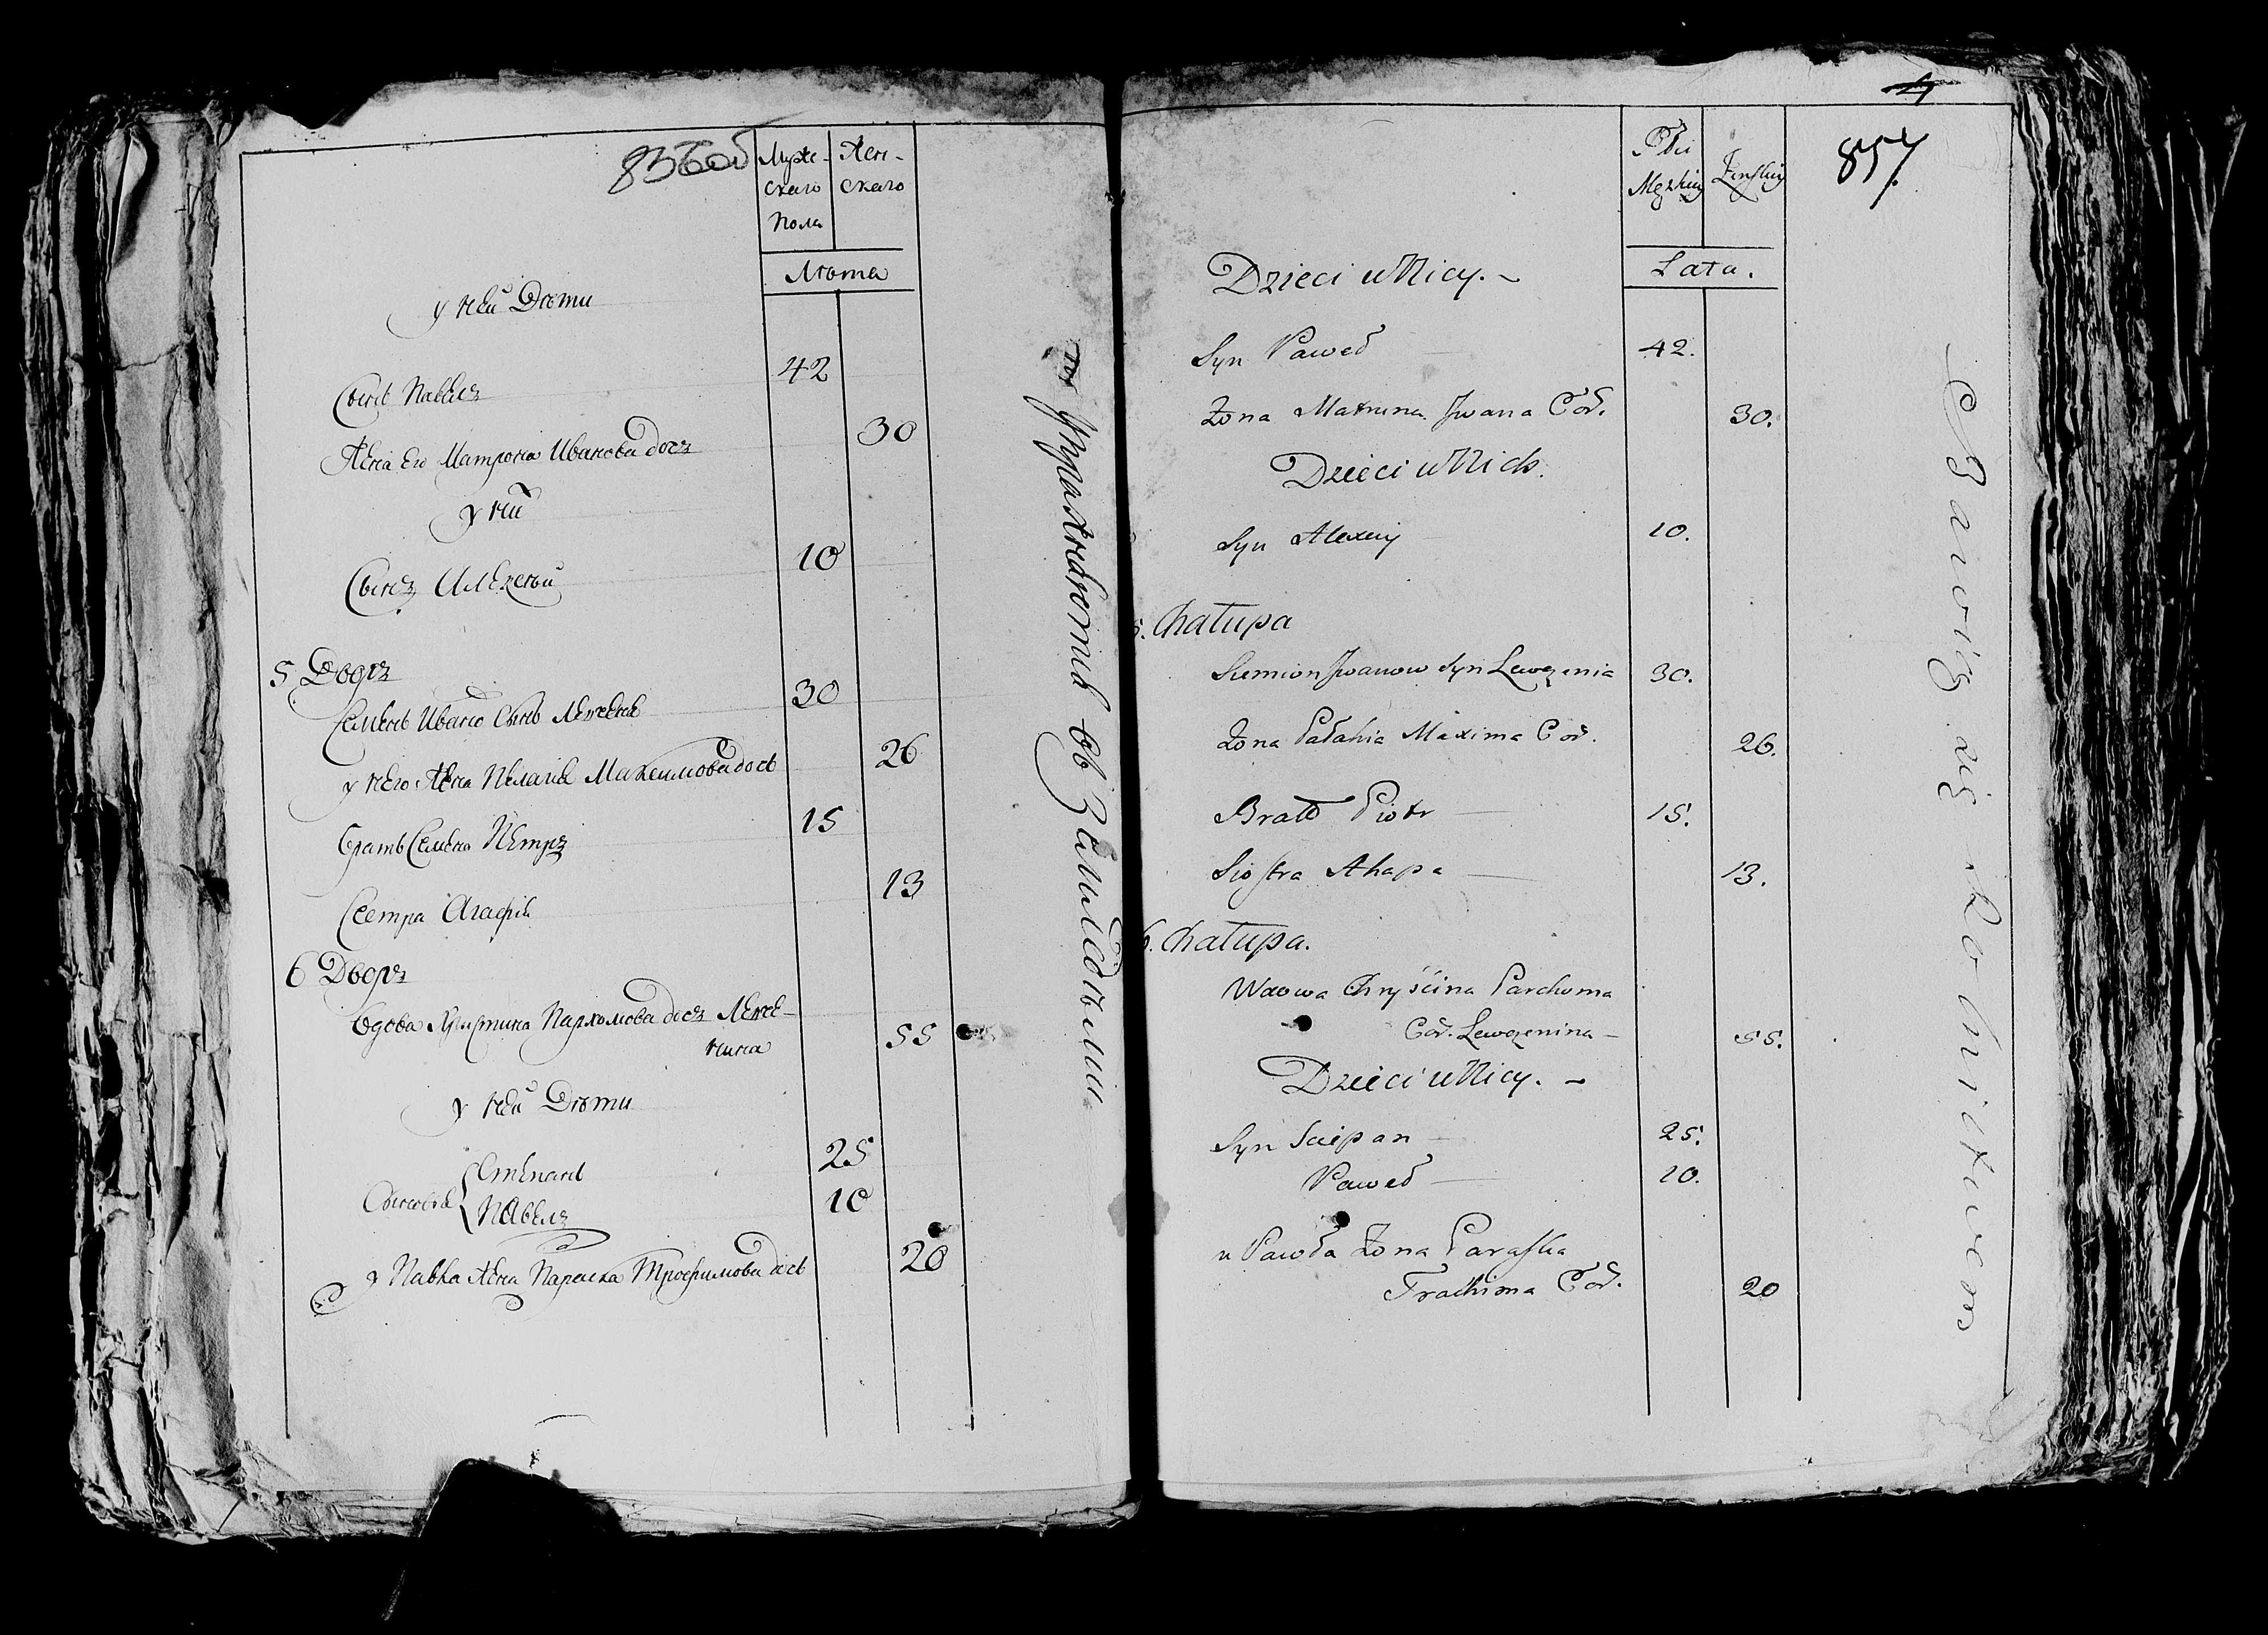 836об
Муже- Жен-
скаго скаго
пола
Лѣта
у ней Дѣти
Сынъ Павелъ 42
Жена его Матрона Иванова дочъ 30
у ни
Сынъ Алексѣй 10
5 Дворъ
Семенъ Ивано Сынъ 30
у него Жена Пелагия Максимова дочъ 26
братъ Семена Петръ 15
Сестра Агафия 13
6 Дворъ
Вдова Христина Пархомова дочъ Левче-
нина 55
у ней Дѣти
Сыновья Степанъ 25
Павелъ 10
у Павла Жена Параска Трофимова дочъ 20
4
837
Płci
Męzkiey Żeńskiey
Lata.
Dzieci u Niey.
Syn Paweł 42.
Żona Matruna Jwana Cor. 30.
Dzieci u Nich.
Syn Alexiey 10.
5. Chałupa
Siemion Jwanow syn Lewczenia 30.
Żona Pałahia Maxima Cor. 26.
Bratt Piotr 15.
Siostra Ahapa 13.
6. Chałupa.
Wdowa Chryścina Parchoma
Cor. Lewczenina 55.
Dzieci u Niey.
Syn Sciepan 25.
Paweł 10.
u Pawła Żona Paraska
Trachima Cor. 20